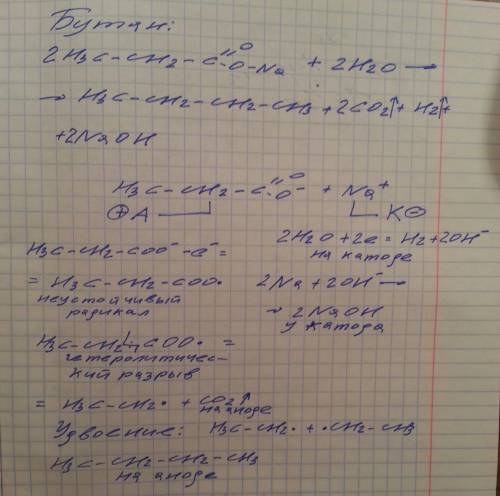 Бутан:
2H3C-CH2-C(=O)-O-Na + 2H2O →
→ H3C-CH2-CH2-CH3 + 2CO2↑ + H2↑ +
+2NaOH
H3C-CH2-C(=O)-O⁻ + Na⁺
⊕A K⊖
H3C-CH2-COO⁻ -e⁻ =
= H3C-CH2-COO·
неустойчивый
радикал
2H2O + 2e = H2 + 2OH⁻
на катоде
2Na + 2OH⁻ →
→ 2NaOH
у катода
H3C-CH2-COO· =
гетеролитичес-
кий разрыв
= H3C-CH2· + CO2↑
на аноде
Удвоение: H3C-CH2· + ·CH2-CH3
H3C-CH2-CH2-CH3
на аноде